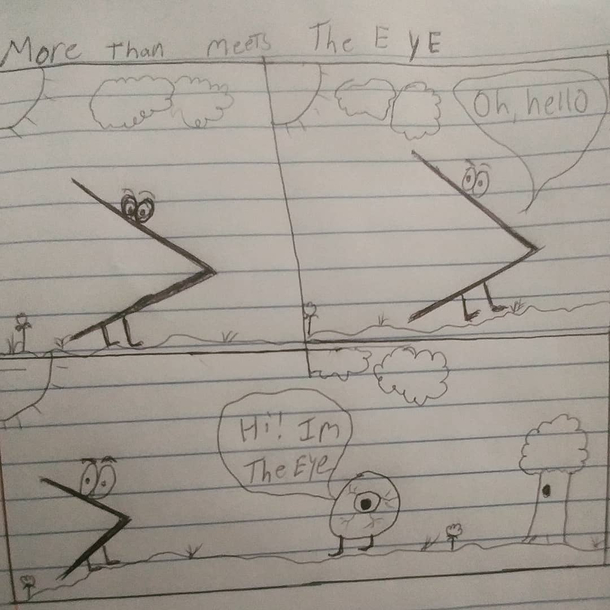 More Than meets The EyE
Oh, hello
Hi! Im
The Eye